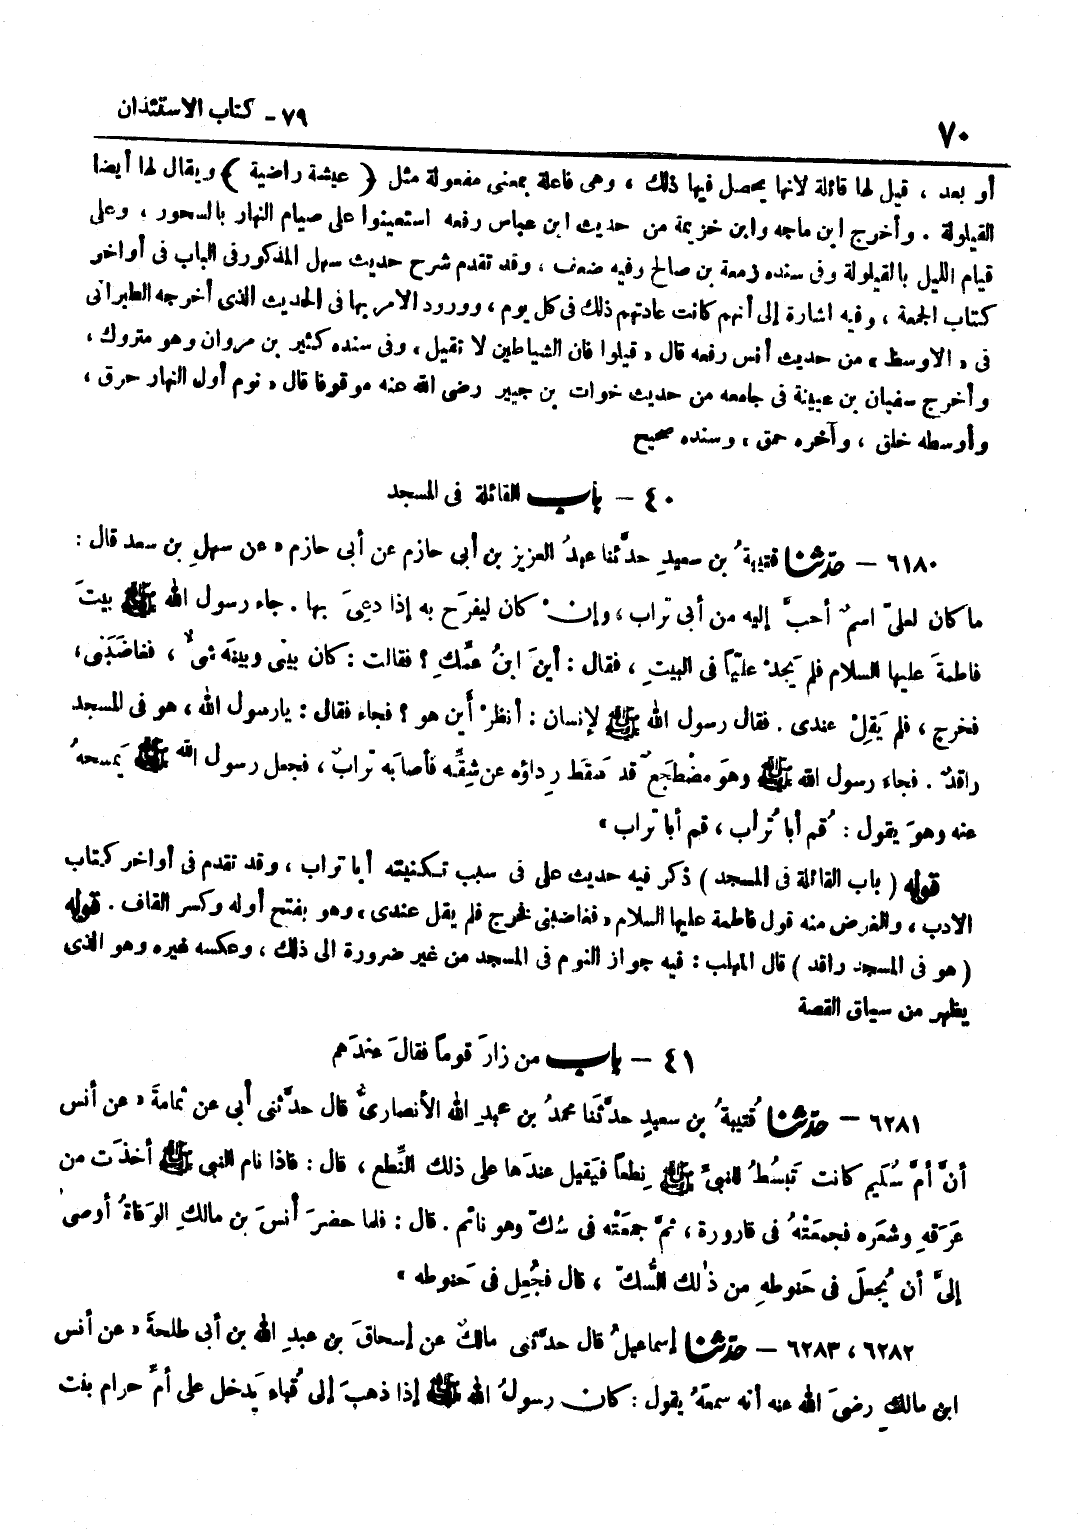 ٧٠
٧٩ - كتاب الاستئذان
أو بعد ، قيل لها قائلة لانها يحصل فيها ذلك ، وهى فاعلة بمعنى مفعولة مثل ﴿ عيشة راضية ﴾ ويقال لها أيضا
القيلولة . وأخرج ابن ماجه وابن خزيمة من حديث ابن عباس رفعه استعينوا على صيام النهار بالسحور ، وعلى
قيام الليل بالقيلولة وفى سنده زمعة بن صالح وفيه ضعف ، وقد تقدم شرح حديث سهل المذكور فى الباب فى أواخر
كتاب الجمعة ، وفيه اشارة إلى أنهم كانت عادتهم ذلك فى كل يوم ، وورود الامر بها فى الحديث الذى أخرجه الطبرانى
فى « الاوسط » من حديث أنس رفعه قال « قيلوا فان الشياطين لا تقيل ، وفى سنده كثير بن مروان وهو متروك ،
وأخرج سفيان بن عيينة فى جامعه من حديث خوات بن جبير رضى الله عنه موقوفا قال « نوم أول النهار حرق ،
وأوسطه خلق ، وآخره حمق ، وسنده صحيح
٤٠ - باب القائلة فى المسجد
٦١٨٠ - حدّثنا قتيبةُ بن سعيدٍ حدَّثنا عبدُ العزيز بن أبى حازم عن أبى حازم « عن سهلِ بن سعد قال :
ما كان لعلىّ اسمٌ أحبَّ إليه من أبى تراب ، وإنْ كان ليفرَح به إذا دعِىَ بها . جاء رسول الله ﷺ بيتَ
فاطمةَ عليها السلام فلم يَجدْ عليّاً فى البيتِ ، فقال : أينَ ابنُ عمَّكِ ؟ فقالت : كان بينى وبينَه شىءٌ ، فغاضَبَنى ،
فخرج ، فلم يَقِلْ عندى . فقال رسول الله ﷺ لإنسان : أنظرْ أَين هو ؟ فجاء فقال : يارسول الله ، هو فى المسجد
راقدٌ . فجاء رسول الله ﷺ وهوَ مضْطجَعٌ قد سَقطَ رِداؤه عن شِقِّه فأصابَه ترابٌ ، فجعل رسول الله ﷺ يَمسحهُ
عنه وهوَ يقول : ُقم أبا ُترأب ، قم أبا تراب »
قوله ( باب القائلة فى المسجد ) ذكر فيه حديث على فى سبب تكنيته أبا تراب ، وقد تقدم فى أواخر كتاب
الادب ، والغرض منه قول فاطمة عليها السلام « فغاضبنى فخرج فلم يقل عندى ، وهو بفتح أوله وكسر القاف . قوله
( هو فى المسجد راقد ) قال المهلب : فيه جواز النوم فى المسجد من غير ضرورة الى ذلك ، وعكسه غيره وهو الذى
يظهر من سياق القصة
٤١ - باب من زارَ قوماً فقالَ عندَهم
٦٢٨١ - حدّثنا ُقتيبةُ بن سعيدٍ حدَّثَنا محمدُ بن عبدِ الله الأنصارىُّ قال حدَّثنى أبى عن ثمامةَ « عن أنس
أنَّ أمَّ سُليم كانت تَبسُطُ للنبىَّ ﷺ نِطعاً فيَقيل عندَها على ذلك النِّطع ، قال : فاذا نام النبى ﷺ أخذَت من
عَرَقهِ وشعَره فجمعَتْهُ فى قارورة ، ثمَّ جمعَتْه فى سُكّ وهو نائم . قال : فلما حضرَ أنسَ بن مالكِ الوَفاةُ أوصى
إلىَّ أن يُجعلَ فى حَنوطهِ من ذٰلك السُّكّ ، قال فجُعِل فى حَنوطه »
٦٢٨٢ ، ٦٢٨٣ - حدّثنا إسماعيلُ قال حدَّثنى مالكٌ عن إسحاقَ بن عبدِ الله بن أبى طلحةَ « عن أنس
ابن مالكٍ رضىَ الله عنه أنه سمعَهُ يقول : كان رسولُ الله ﷺ إذا ذهبَ إلى ُقباء يَدخل على أمَّ حرام بنت